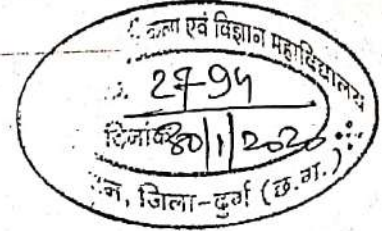 कला एवं विज्ञान महाविद्यालय
2794
दिनांक 30/1/2020
जिला-दुर्ग (छ.ग.)